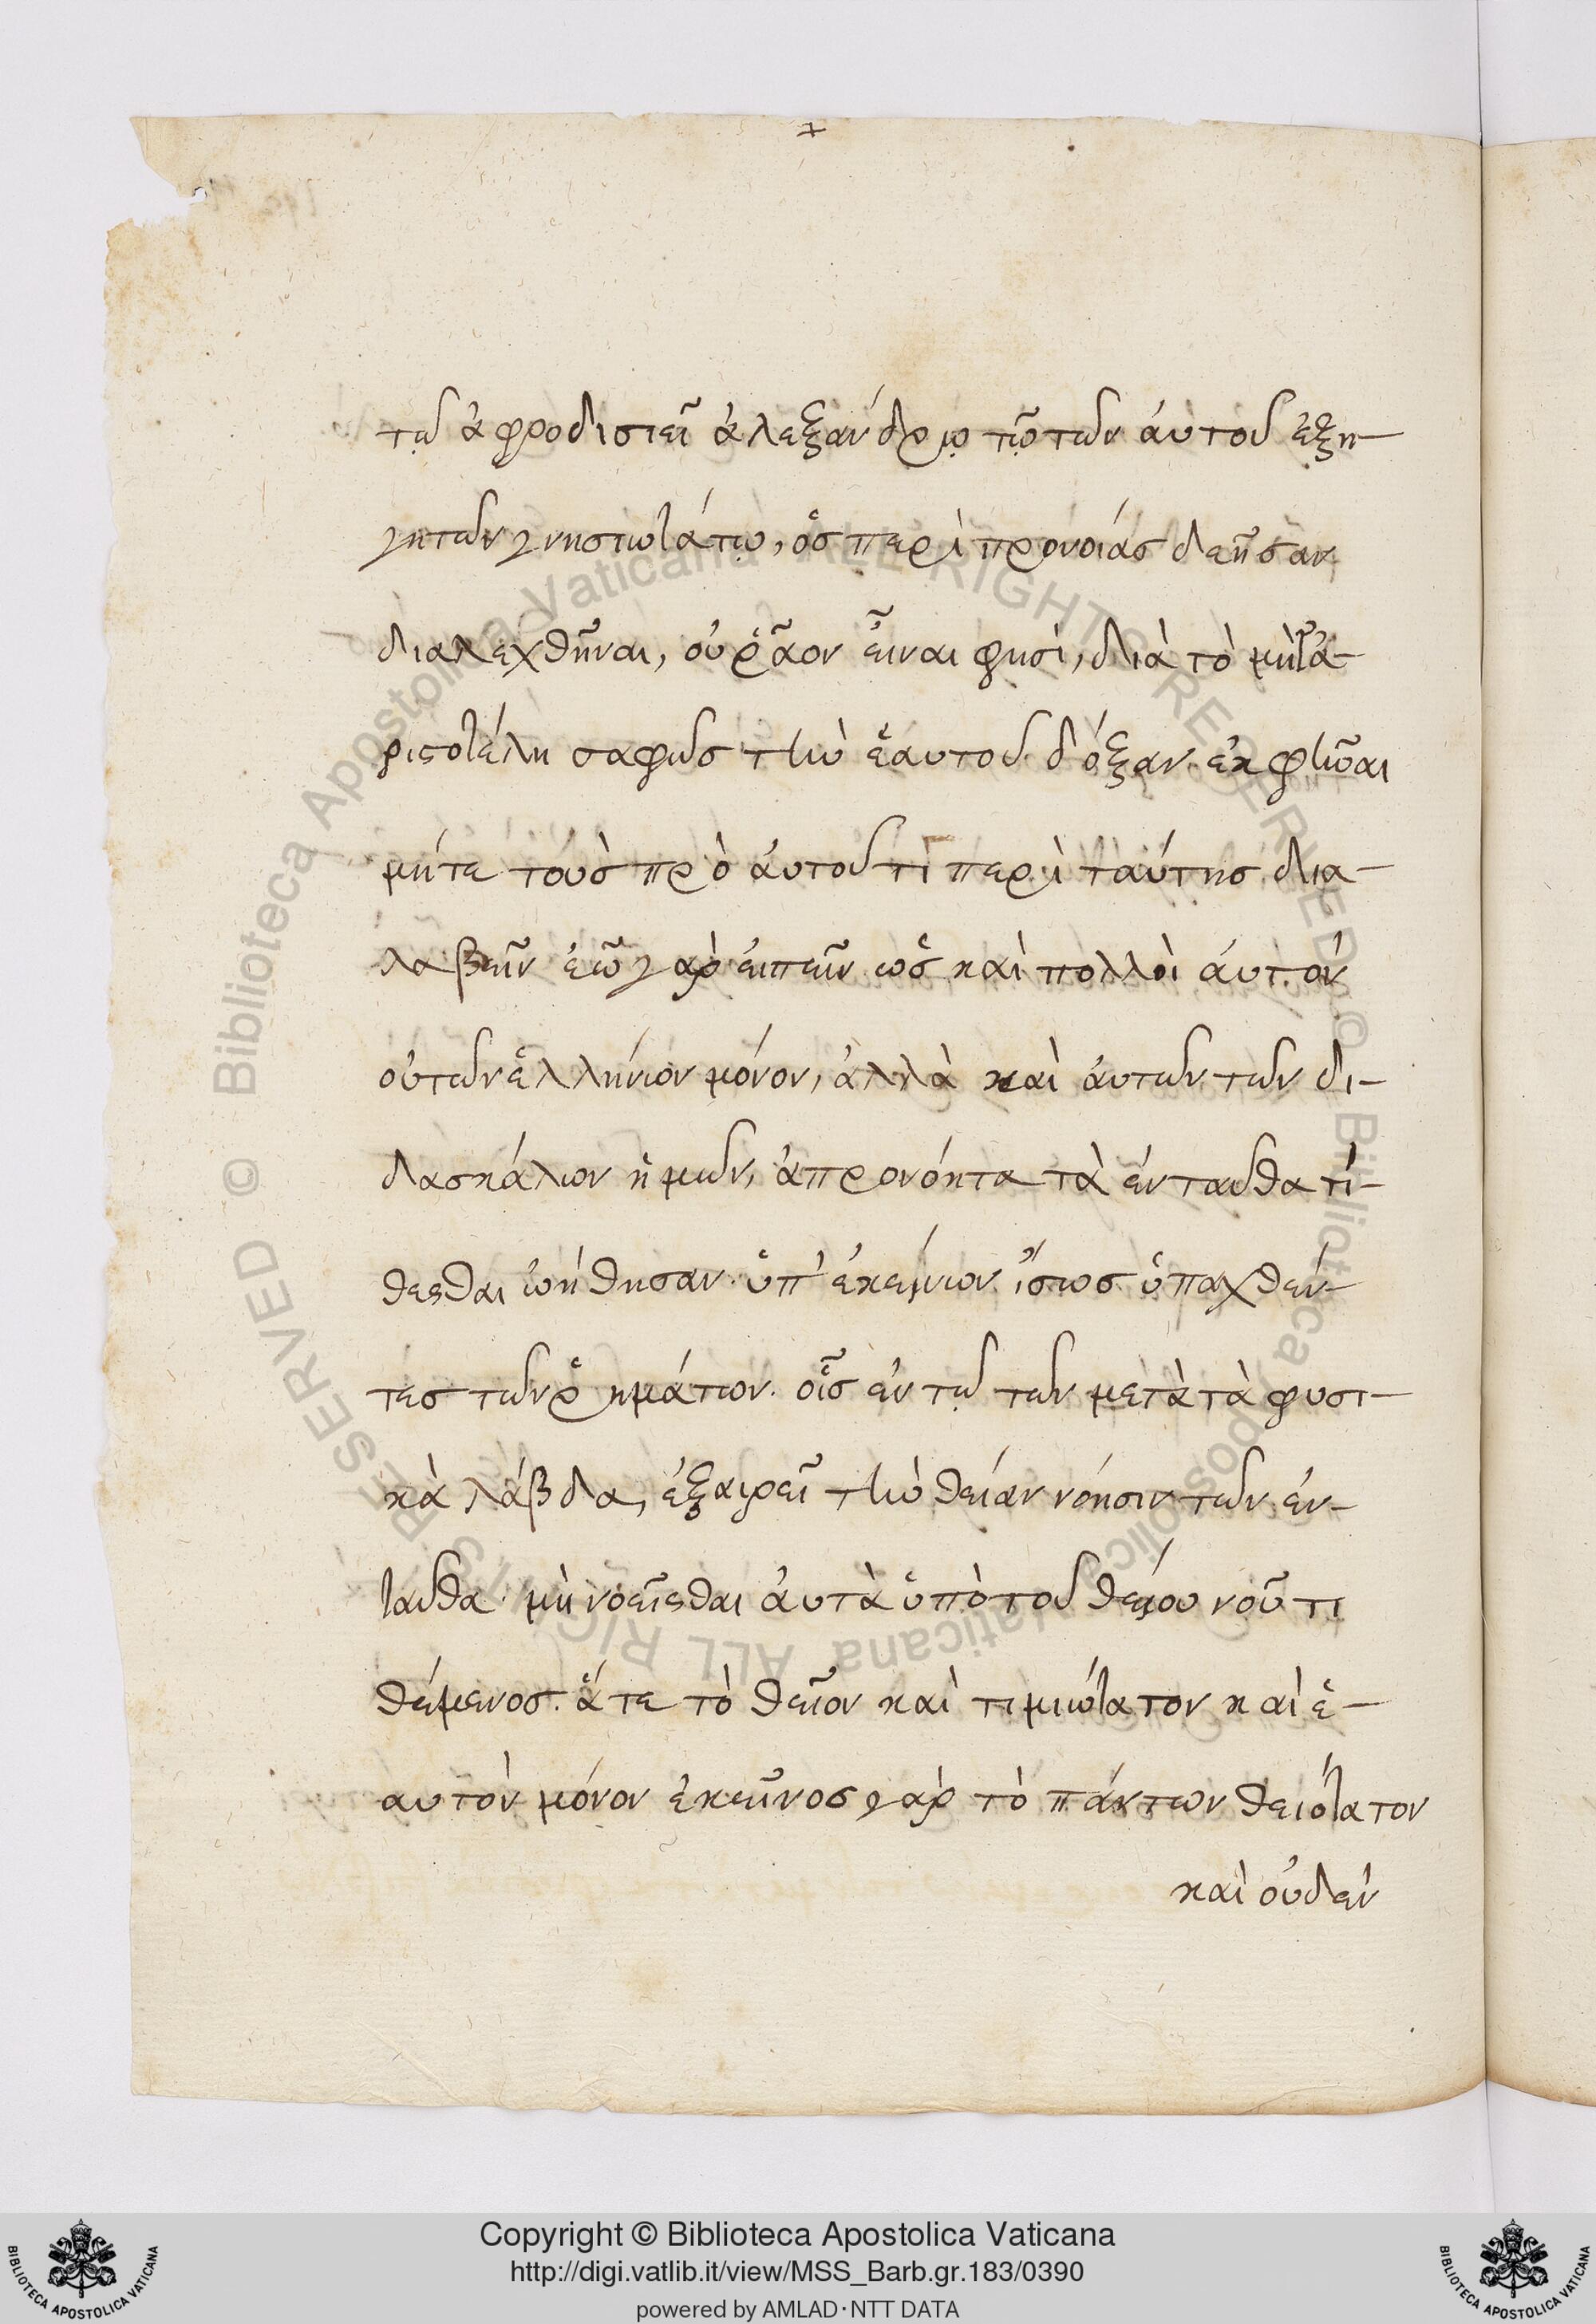 +
τῷ ἀφροδισιεῖ ἀλεξάνδρῳ τῷ τῶν ἀυτοῦ ἐξη-
γητῶν γνησιωτάτῳ, ὃς περὶ προνοίας δεῆσαν
διαλεχθῆναι, οὐ ῥᾶον εἶναι φησὶ, διὰ τὸ μὴτ' ἀ-
ριστοτέλη σαφῶς τὴν ἑαυτοῦ δόξαν ἐκφῆναι
μήτε τοὺς πρὸ ἀυτοῦ τὶ περὶ ταύτης δια-
λαβεῖν ἐῶ γὰρ ἐιπεῖν ὡς καὶ πολλοὶ ἀυτὸν
οὐ τῶν ἑλλήνων μόνον, ἀλλὰ καὶ ἀυτῶν τῶν δι-
δασκάλων ἡμῶν, ἀπρονόητα τὰ ἐνταῦθα τί-
θεσθαι ὠήθησαν. ὑπ' ἐκείνων ἴσως ὑπαχθέν-
τες τῶν ῥημάτων. οἷς ἐν τῷ τῶν μετὰ τὰ φυσι-
κὰ λάβδα, ἐξαιρεῖ τὴν θείαν νόησιν τῶν ἐν-
ταῦθα. μὴ νοεῖσθαι ἀυτὰ ὑπὸ τοῦ θείου νοῦ τι
θέμενος. ἅτε τὸ θεῖον καὶ τιμιώτατον καὶ ἑ-
αυτὸν μόνον ἐκεῖνος γὰρ τὸ πάντων θειότατον
καὶ οὐδὲν
© Biblioteca Apostolica Vaticana ALL RIGHTS RESERVED © Biblioteca Apostolica Vaticana ALL RIGHTS RESERVED
Copyright © Biblioteca Apostolica Vaticana
http://digi.vatlib.it/view/MSS_Barb.gr.183/0390
powered by AMLAD･NTT DATA
BIBLIOTECA APOSTOLICA VATICANA
BIBLIOTECA APOSTOLICA VATICANA